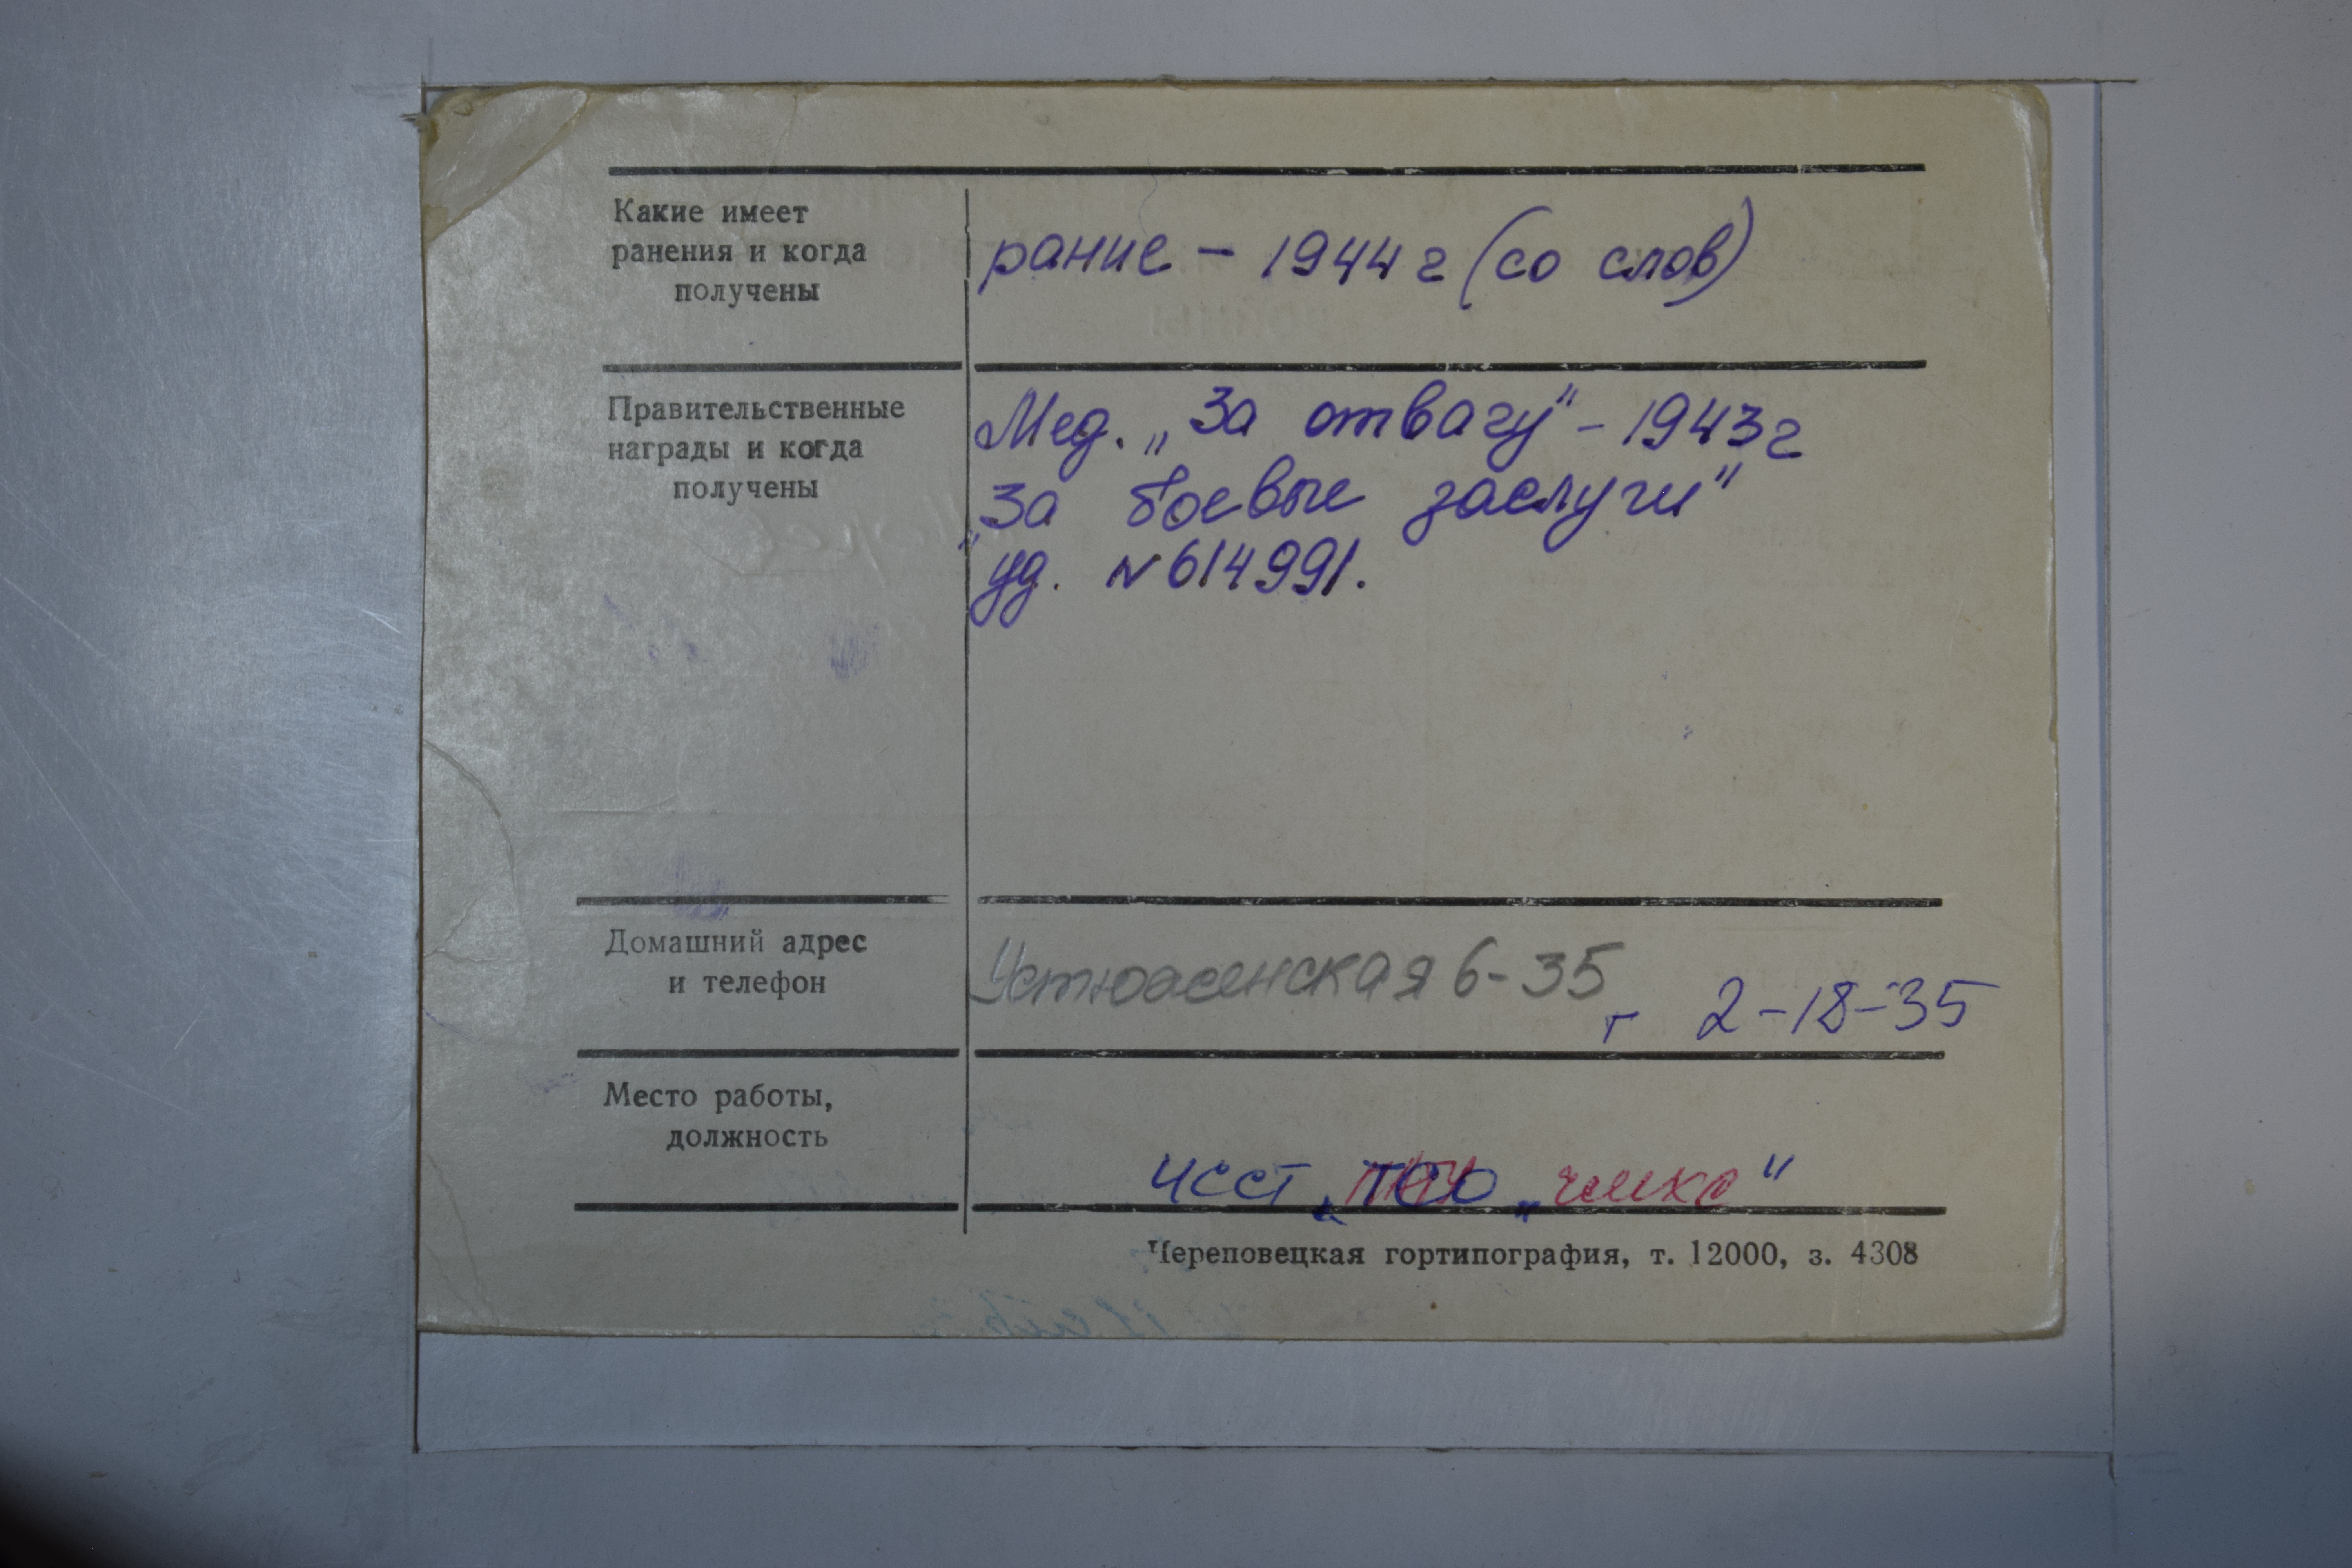 Какие имеет
ранения и когда
получены
рание - 1944 г (со слов)
Правительственные
награды и когда
получены
Мед. „За отвагу" - 1943г
„За боевые заслуги"
уд. №614991.
Домашний адрес
и телефон
Устюженская 6-35
т 2-18-35
Место работы,
должность
ЧССТ
Череповецкая гортипография, т. 12000, з. 4308